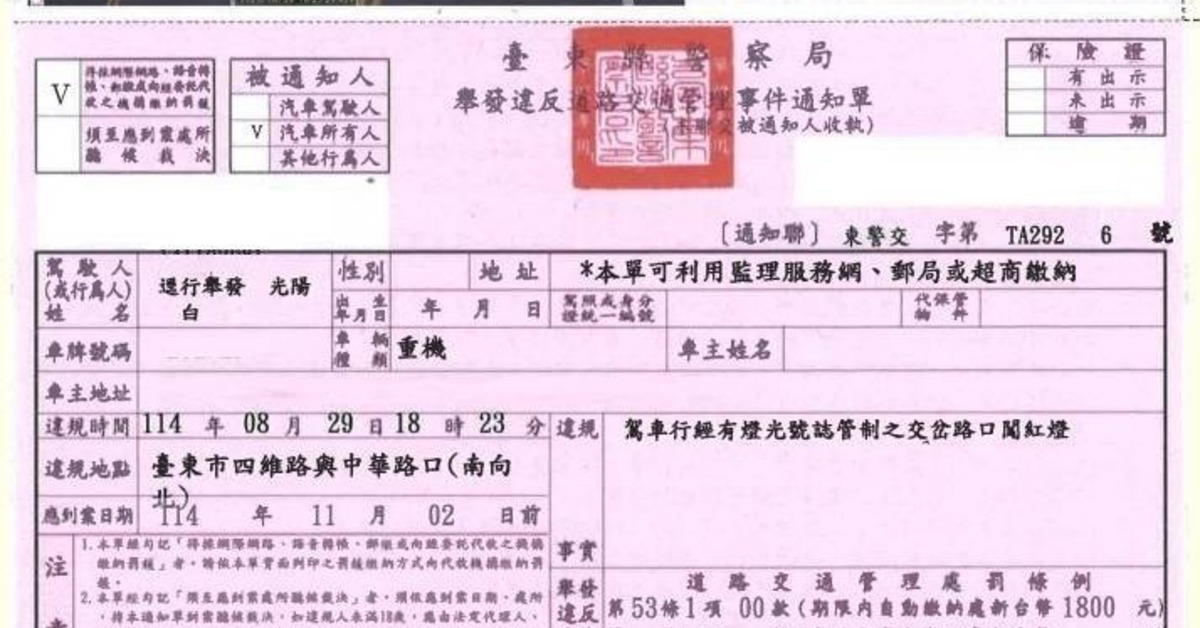 臺東縣警察局
舉發違反道路交通管理事件通知單
(本聯交被通知人收執)
V 得採網際網路、語音轉帳、郵繳或向經委託代收之機構繳納罰鍰
須至應到案處所聽候裁決
被通知人
汽車駕駛人
V 汽車所有人
其他行為人
保險證
有出示
未出示
逾期
〔通知聯〕 東警交 字第 TA292 6 號
駕駛人(或行為人)姓名 逕行舉發 光陽 白 性別 地址 *本單可利用監理服務網、郵局或超商繳納
出生年月日 年 月 日 駕照或身分證統一編號 代保管物件
車牌號碼 車輛種類 重機 車主姓名
車主地址
違規時間 114 年 08 月 29 日 18 時 23 分
違規地點 臺東市四維路與中華路口(南向北)
應到案日期 114 年 11 月 02 日前
違規事實 駕車行經有燈光號誌管制之交岔路口闖紅燈
注
1.本單經勾記「得採網際網路、語音轉帳、郵繳或向經委託代收之機構
繳納罰鍰」者,請依本單背面列印之罰鍰繳納方式向代收機構繳納罰
鍰。
2.本單經勾記「須至應到案處所聽候裁決」者,須依應到案日期、處所
,持本通知單到案聽候裁決,如違規人未滿18歲,應由法定代理人、
舉發違反 道路交通管理處罰條例
第53條1項 00款(期限內自動繳納處新台幣 1800 元)